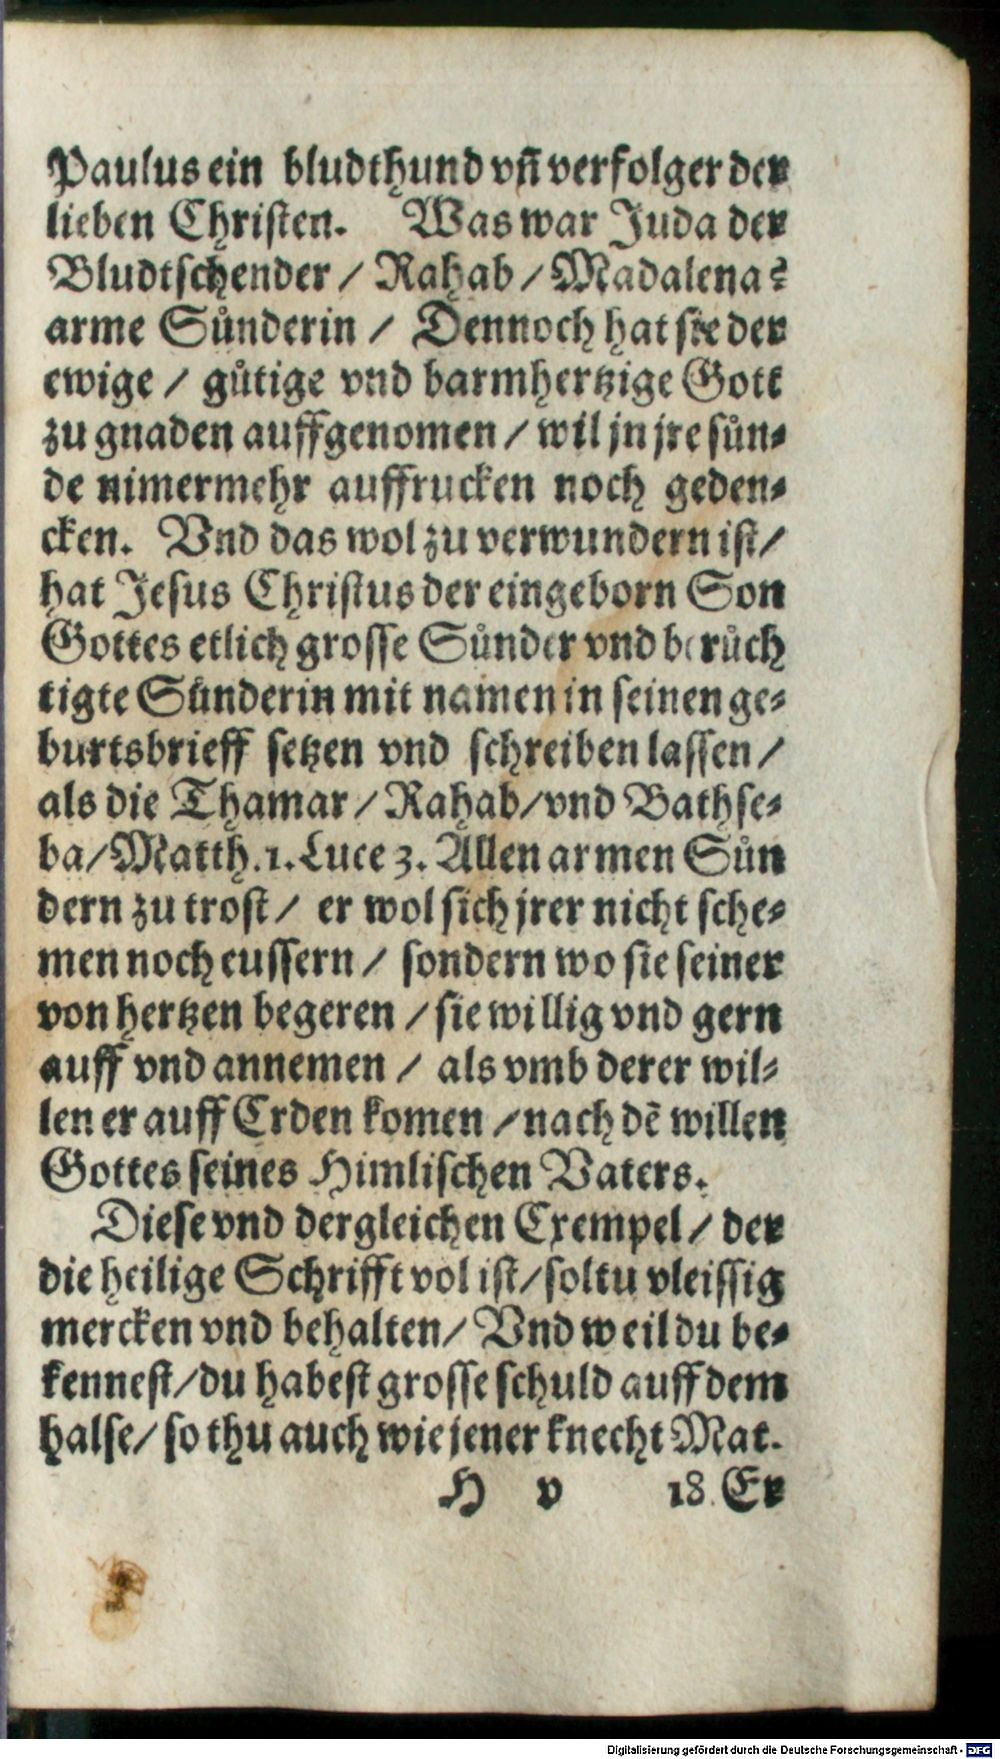 Paulus ein bludthund vñ verfolger der
lieben Christen. Was war Juda der
Bludtschender / Rahab / Madalena?
arme Sůnderin / Dennoch hat sie der
ewige / gůtige vnd barmhertzige Gott
zu gnaden auffgenomen / wil jn jre sůn⸗
de nimermehr auffrucken noch geden⸗
cken. Vnd das wol zu verwundern ist /
hat Jesus Christus der eingeborn Son
Gottes etlich grosse Sůnder vnd berůch
tigte Sůnderin mit namen in seinen ge⸗
burtsbrieff setzen vnd schreiben lassen /
als die Thamar / Rahab / vnd Bathse⸗
ba / Matth. 1. Luce 3. Allen armen Sůn
dern zu trost / er wol sich jrer nicht sche⸗
men noch eussern / sondern wo sie seiner
von hertzen begeren / sie willig vnd gern
auff vnd annemen / als vmb derer wil⸗
len er auff Erden komen / nach dē willen
Gottes seines Himlischen Vaters.
Diese vnd dergleichen Exempel / der
die heilige Schrifft vol ist / soltu vleissig
mercken vnd behalten / Vnd weil du be⸗
kennest / du habest grosse schuld auff dem
halse / so thu auch wie jener knecht Mat.
H v 18. Er
Digitalisierung gefördert durch die Deutsche Forschungsgemeinschaft - DFG